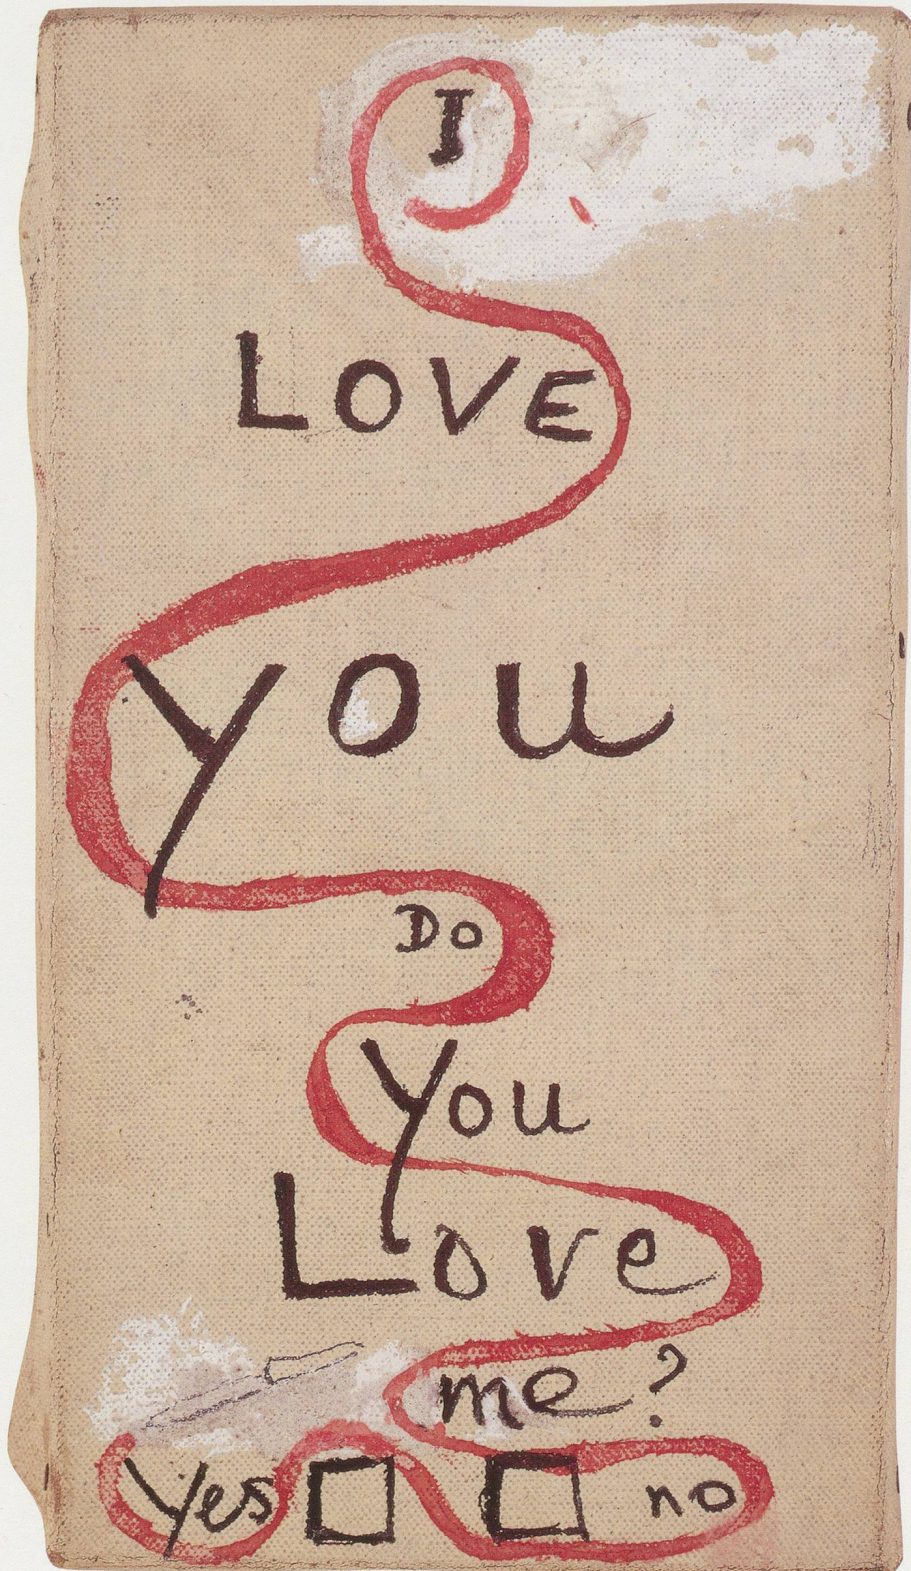 I
LOVE
you
Do
you
Love
me?
yes no